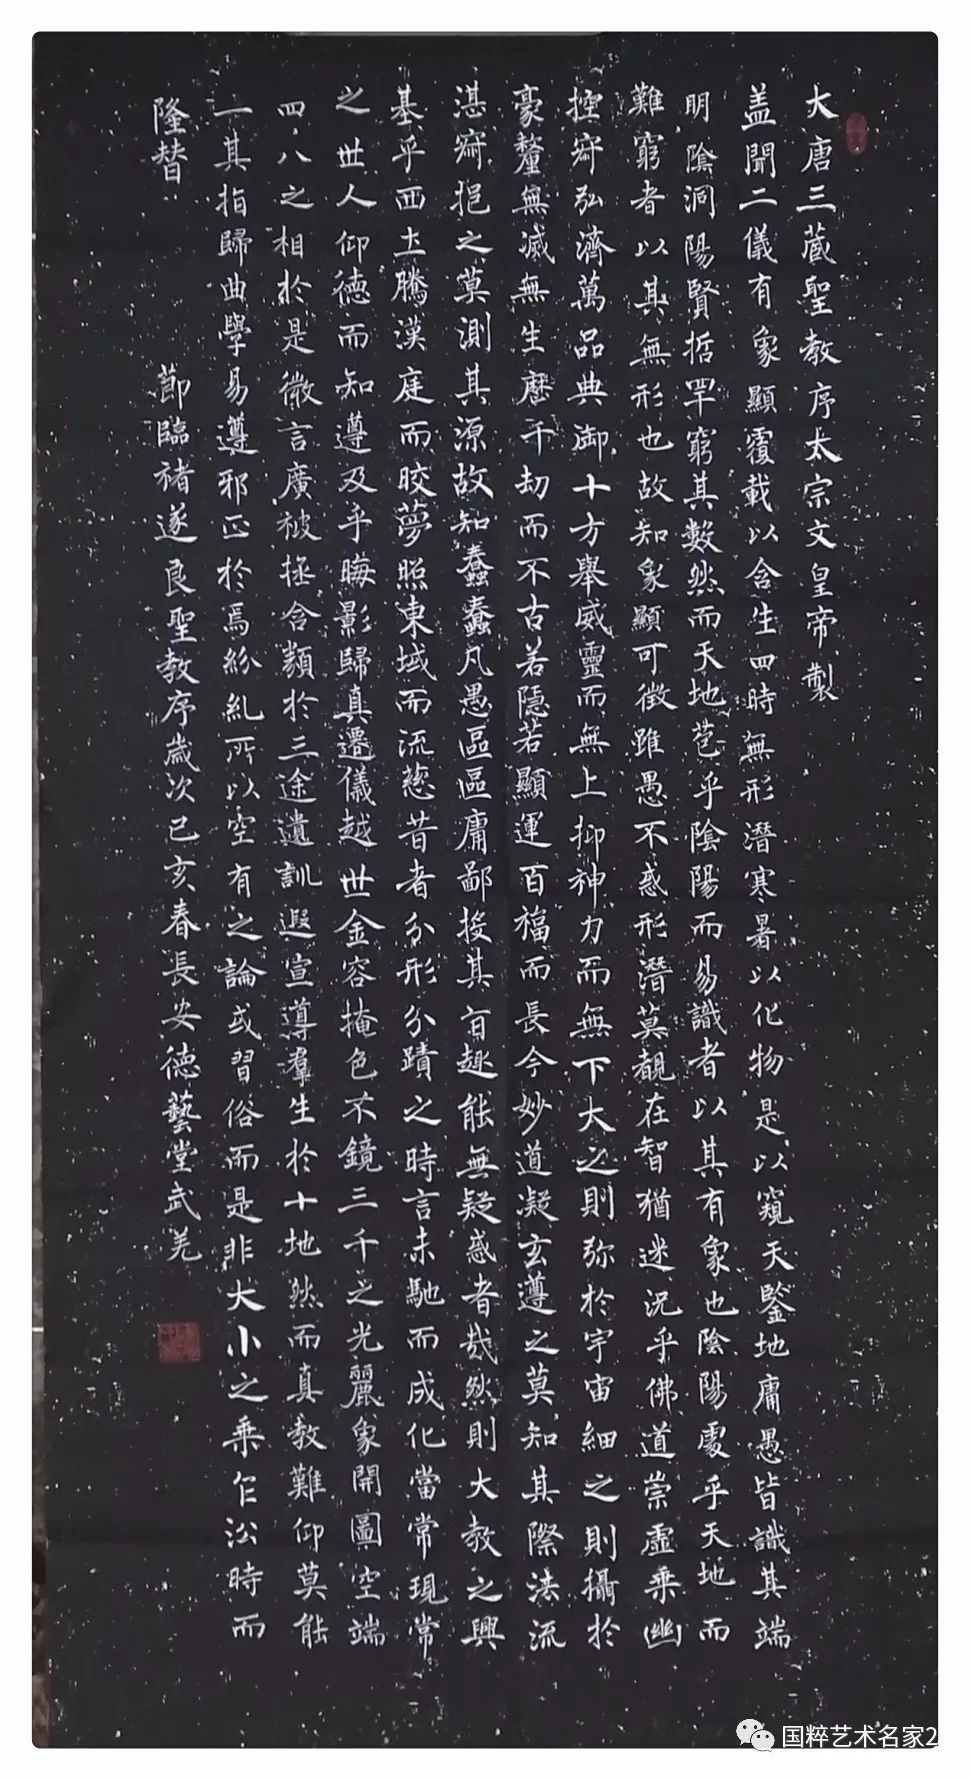 大唐三藏聖教序太宗文皇帝製
盖聞二儀有象顯覆載以含生四時無形潛寒暑以化物是以窺天鑒地庸愚皆識其端
明陰洞陽賢哲罕窮其數然而天地苞乎陰陽而易識者以其有象也陰陽處乎天地而
難窮者以其無形也故知象顯可徵雖愚不惑形潛莫覩在智猶迷況乎佛道崇虛乘幽
控寂弘濟萬品典御十方舉威靈而無上抑神力而無下大之則弥於宇宙細之則攝於
豪釐無滅無生歷千劫而不古若隱若顯運百福而長今妙道凝玄遵之莫知其際法流
湛寂挹之莫測其源故知蠢蠢凡愚區區庸鄙投其旨趣能無疑惑者哉然則大教之興
基乎西土騰漢庭而晈夢照東域而流慈昔者分形分蹟之時言未馳而成化當常現常
之世人仰德而知遵及乎晦影歸真遷儀越世金容掩色不鏡三千之光麗象開圖空端
四八之相於是微言廣被拯含類於三途遺訓遐宣導羣生於十地然而真教難仰莫能
一其指歸曲學易遵邪正於焉紛糺所以空有之論或習俗而是非大小之乘乍沿時而
隆替 節臨褚遂良聖教序歲次己亥春長安德藝堂武羌
国粹艺术名家2